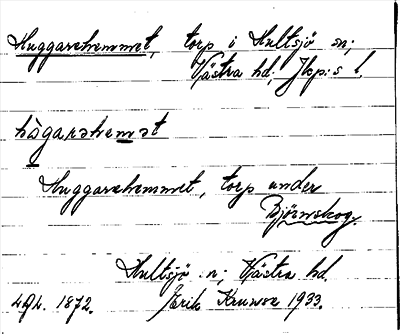 Huggarehemmet, torp i Hultsjö sn;
Västra hd. Jkp:s l.
hògarəhemət
Huggarehemmet, torp under
Björnskog.
Hultsjö sn; Västra hd.
1872. Erik 1933.